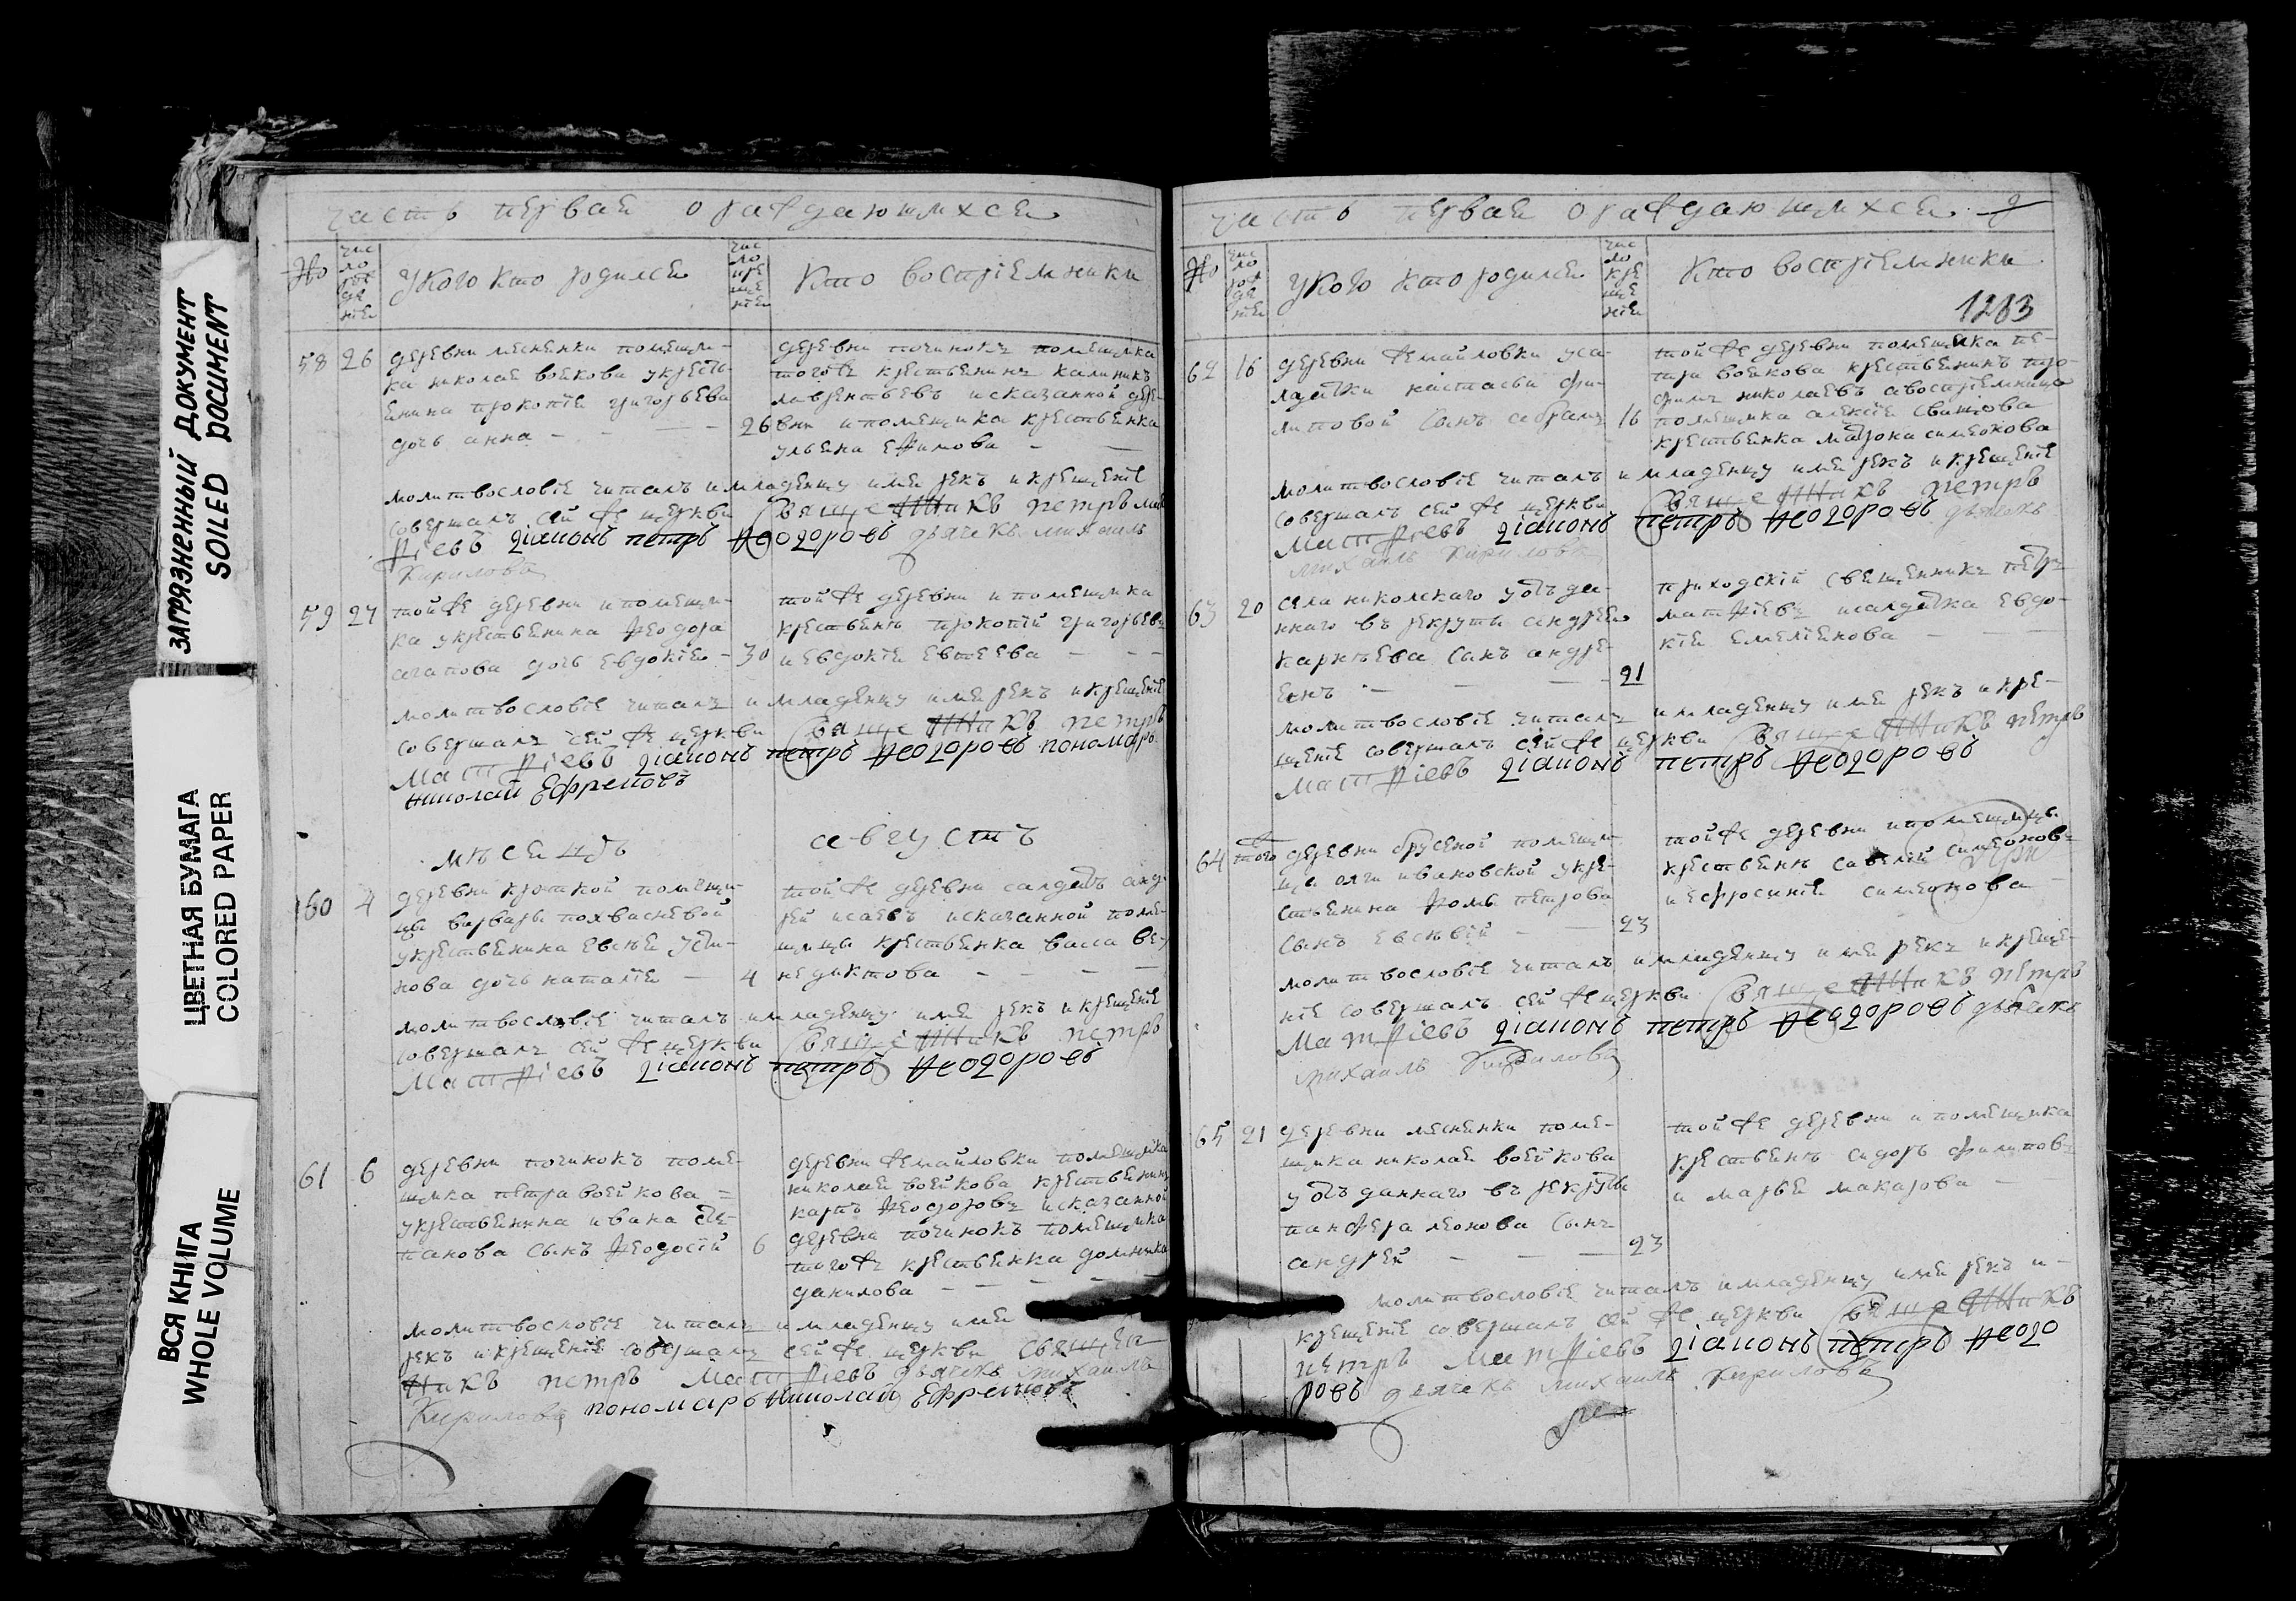 ЗАГРЯЗНЕННЫЙ ДОКУМЕНТ
SOILED DOCUMENT
ЦВЕТНАЯ БУМАГА
COLORED PAPER
ВСЯ КНИГА
WHOLE VOLUME
часть первая о раждающихся
№
число рожденія
У кого кто родился
число крещенія
Кто воспріемники
58 26
деревни мснѣнки помещи-
ка николая воикова у крестья-
янина прокопіе григорьева
дочь анна
26
деревни починокъ помещика
тогоже крестьянинъ калиникъ
лаврентьевъ и сказанной дере-
вни и помещика крестьянка
ульяна ефимова
молитвословіе читалъ и младенцу имя рекъ и крещеніе
совершалъ сей же церкви священникъ петръ мат
ѳіевъ діаконъ петръ ѳеодоровъ дьячекъ михаилъ
Кириловъ
59 27
тойже деревни и помещи-
ка у крестьянина ѳеодора
агапова дочь евдокія
30
тойже деревни и помещика
крестьянъ прокопій григорьевъ
и евдокія евтеева
молитвословіе читалъ и младенцу имя рекъ и крещеніе
совершалъ сей же церкви священникъ петръ
Матѳіевъ діаконъ петръ ѳеодоровъ пономарь
николай Ефремовъ
мѣсяцъ августъ
60 4
деревни крюткой помещи-
цы варвары похвасневой
у крестьянина евсея усти-
нова дочь наталія
4
тойже деревни салдатъ анд-
рей исаевъ и сказанной поме-
щицы крестьянка васса ве-
недиктова
молитвословіе читалъ и младенцу имя рекъ и крещеніе
совершалъ сей же церкви священникъ петръ
Матѳіевъ діаконъ петръ ѳеодоровъ
61 6
деревни починокъ поме-
щика петра воейкова
у крестьянина ивана сте-
панова сынъ ѳеодосій
6
деревни жемайловки помещика
николая воейкова крестьянинъ
карпъ ѳеодоровъ и сказанной
деревни починокъ помещика
тогоже крестьянка домника
данилова
молитвословіе читалъ и младенцу имя
рекъ и крещеніе совершалъ сей же церкви священ
никъ петръ Матѳіевъ дьячекъ михаилъ
Кириловъ пономарь николай Ефремовъ
часть первая о раждающихся 9
№
число рожденія
У кого кто родился
число крещенія
Кто воспріемники
1283
62 16
деревни жемайловки у са-
лдатки настасьи фи-
липовой сынъ авраамъ
16
тойже деревни помещика пе-
тра воейкова крестьянинъ тро-
фимъ николаевъ а воспріемница
помещика алексіе свищова
крестьянка матрона симеонова
молитвословіе читалъ и младенцу имя рекъ и крещеніе
совершалъ сей же церкви священникъ петръ
Матѳіевъ діаконъ петръ ѳеодоровъ дьячекъ
михаилъ Кириловъ
63 20
села николскаго у отъда-
ннаго въ рекруты андрея
карнѣева сынъ андре-
янъ
21
приходскій священникъ петръ
матѳіевъ и салдатка евдо-
кія емеліянова
молитвословіе читалъ и младенцу имя рекъ и кре-
щеніе совершалъ сей же церкви священникъ петръ
Матѳіевъ діаконъ петръ ѳеодоровъ
64 тогож
деревни брусеной помещи-
цы олги ивановской у кре-
стьянина ѳомы петрова
сынъ евсѣвій
23
тойже деревни и помещицы
крестьянъ савелій симеонов-
и ефросинія симеонова
молитвословіе читалъ и младенцу имя рекъ и креще-
ніе совершалъ сей же церкви священникъ петръ
Матѳіевъ діаконъ петръ ѳеодоровъ дьячекъ
михаилъ Кириловъ
65 21
деревни мснѣнки поме-
щика николая воейкова
у отъданнаго въ рекруты
панфера леонова сынъ
андрей
23
тойже деревни и помещика
крестьянъ сидоръ филиповъ
и марья макарова
молитвословіе читалъ и младенцу имя рекъ и-
крещеніе совершалъ сей же церкви священникъ
петръ Матѳіевъ діаконъ петръ ѳеодо
ровъ дьячекъ михаилъ Кириловъ